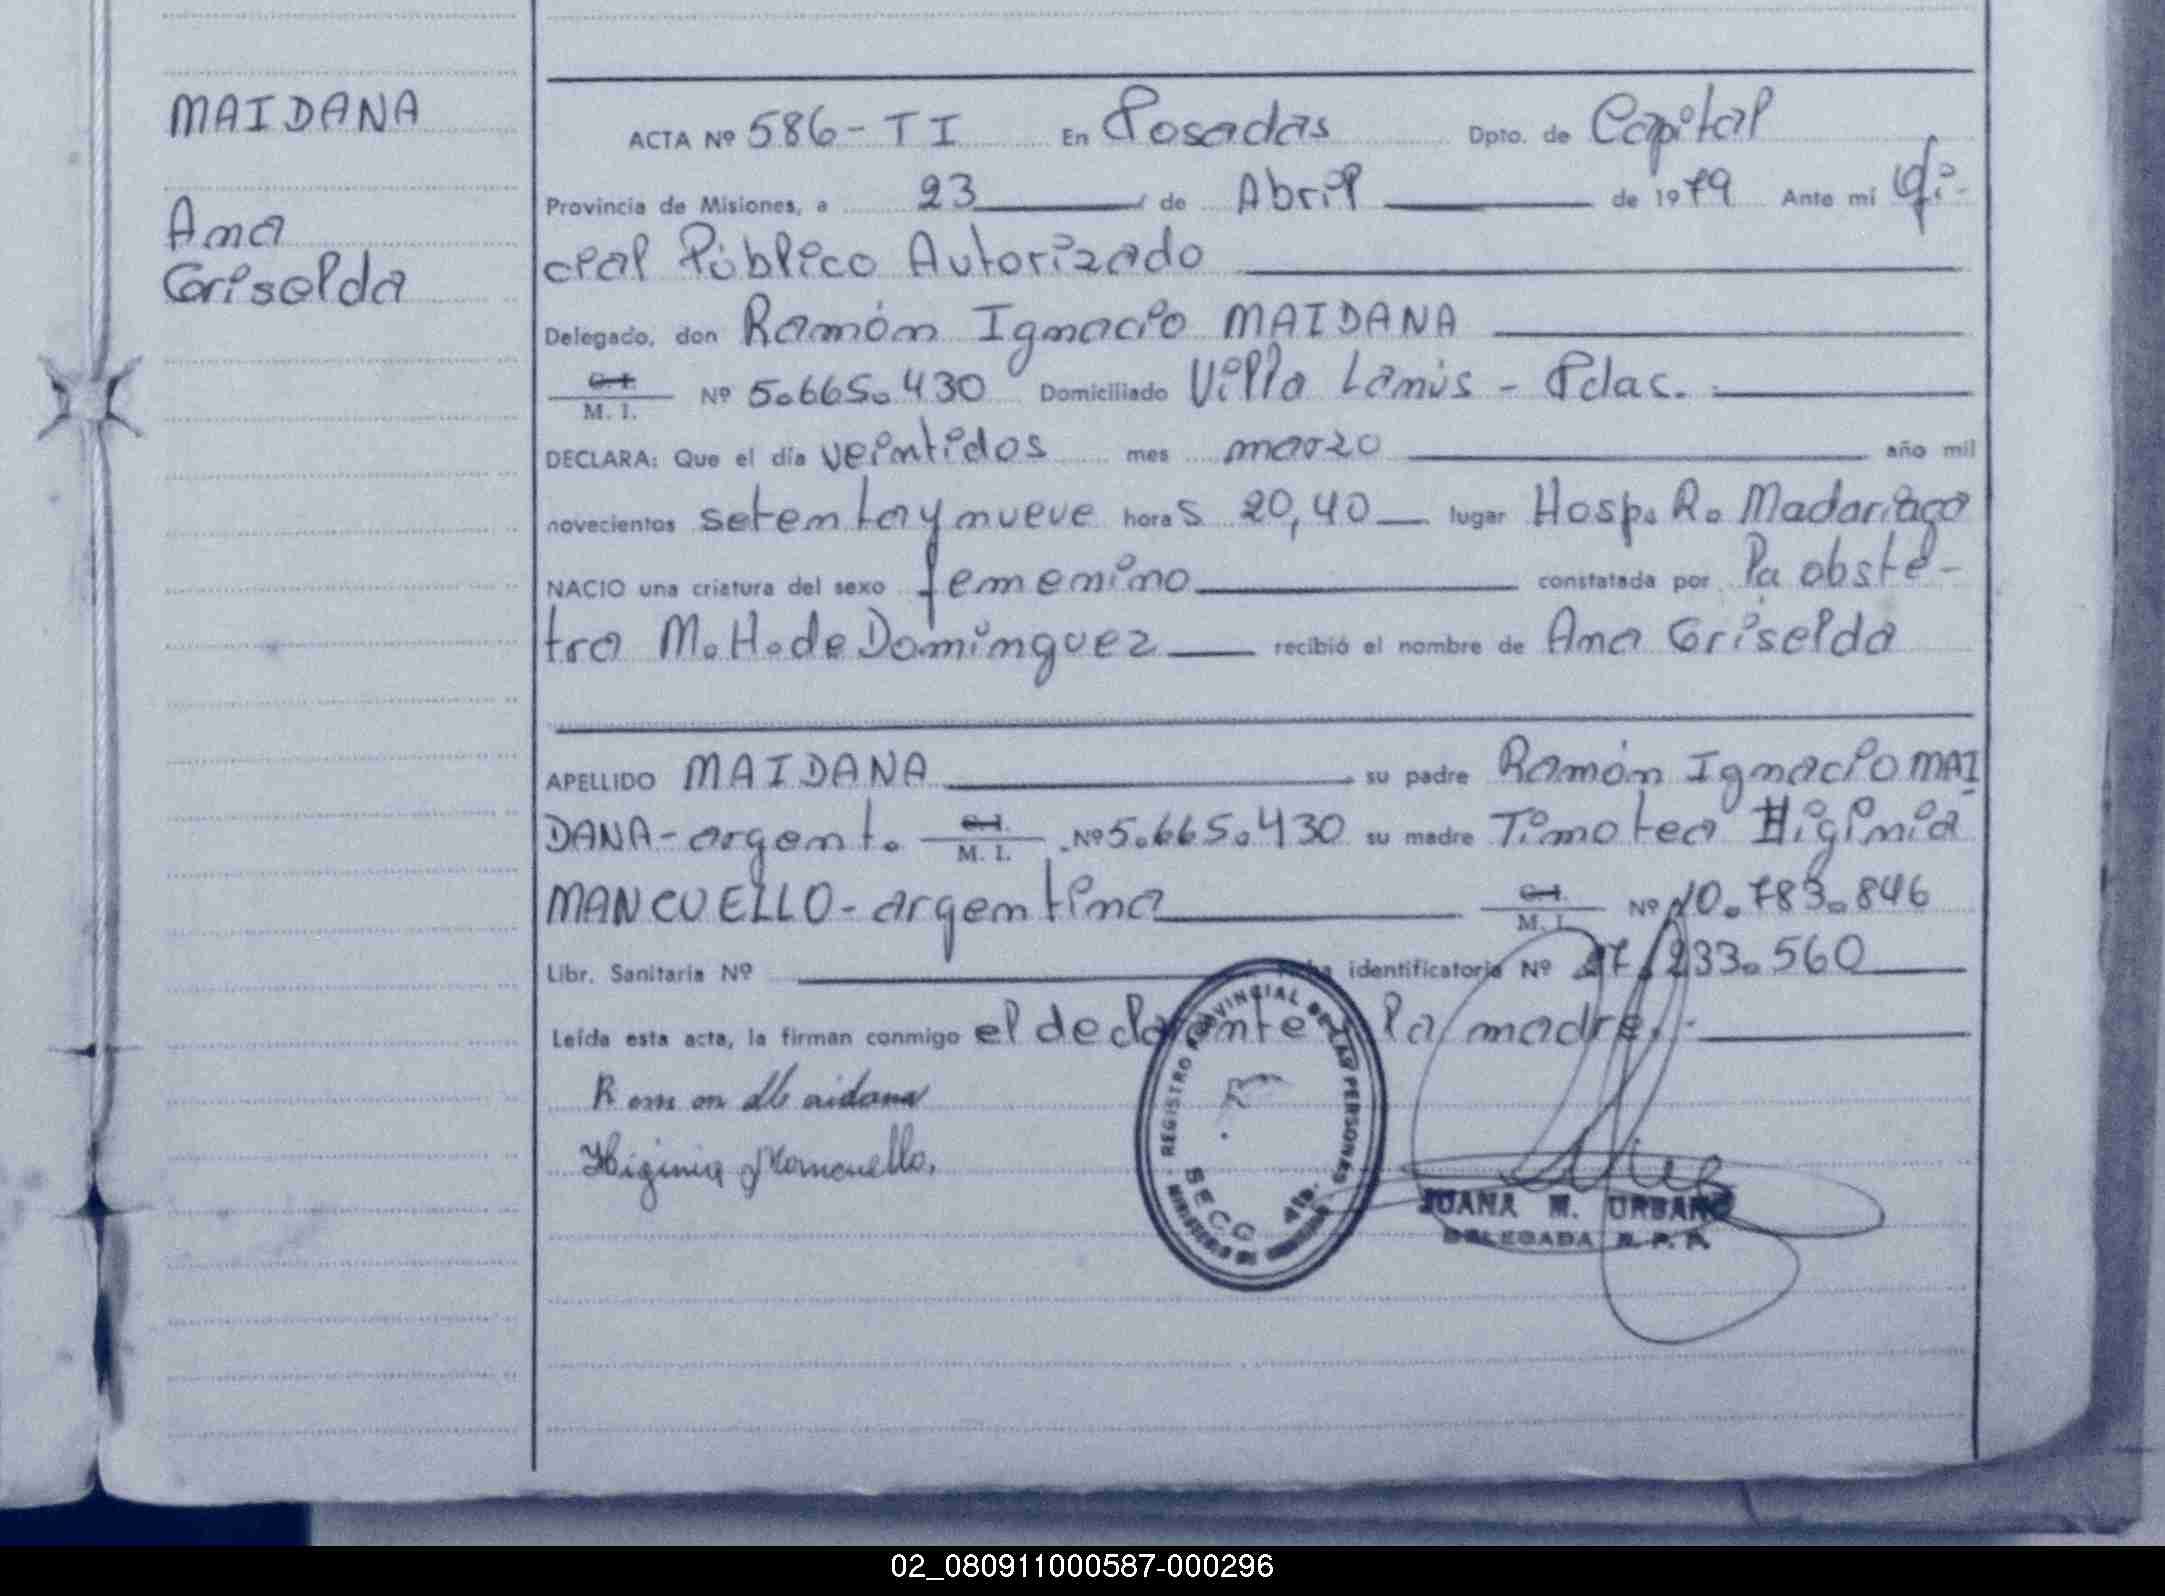 MAIDANA
Ana
Griselda
ACTA Nº 586-TI En Posadas Dpto. de Capital
Provincia de Misiones, a 23 de Abril de 1979 Ante mí Ofi-
cial Público Autorizado
Delegado, don Ramón Ignacio MAIDANA
C.I. M. I. Nº 5.665.430 Domiciliado Villa Lanús - Pdas.
DECLARA: Que el día veintidos mes marzo año mil
novecientos setenta y nueve horas 20,40 lugar Hosp. R. Madariaga
NACIO una criatura del sexo femenino constatada por la obste-
tra M. H. de Dominguez recibió el nombre de Ana Griselda
APELLIDO MAIDANA su padre Ramón Ignacio MAI
DANA - argent. C.I. M. I. Nº 5.665.430 su madre Timotea Higinia
MANCUELLO - argentina C.I. M. I. Nº 10.783.846
Libr. Sanitaria Nº identificatoria Nº 27.233.560
Leída esta acta, la firman conmigo el declarante la madre.
Ramon Maidana
Higinia Mancuello.
REGISTRO PROVINCIAL DE LAS PERSONAS
SECC 4ta.
MINISTERIO DE GOBIERNO
JUANA M. URBANO
DELEGADA R. P. P.
02_080911000587-000296